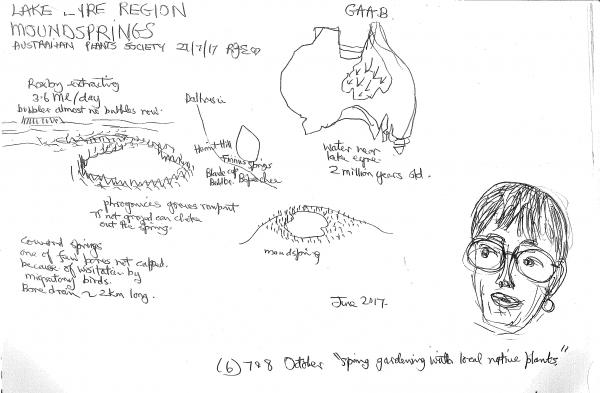 LAKE EYRE REGION
MOUNDSPRINGS
AUSTRALIAN PLANTS SOCIETY 21/7/17
GAAB
Roxby extracting
3.6 ML/day
bubbler almost no bubbles now.
Dalhousie
Hermit Hill
Finniss springs
Blanche cup
Bubbler
Water near
lake eyre
2 million years old.
phragmites grows rampant
if not grazed can choke
out the spring.
moundspring
Coward springs
one of few bores not capped.
because of visitation by
migratory birds.
Bore drain ~ 2km long.
June 2017.
(6) 7&8 October "Spring gardening with local native plants"